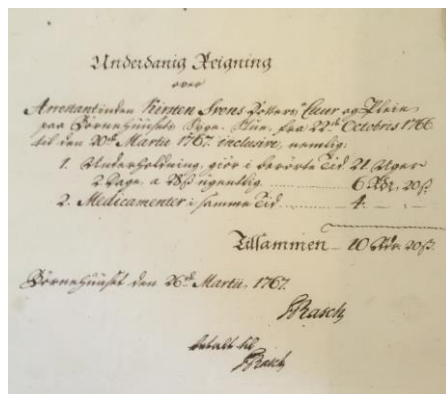 Underdanig Reigning
over
Arrestantinden Kirsten Svens Dotters Cuur og Pleie
paa Börnehuusets Syge-Stue, fra 22de Octobris 1766
til den 20de Martii 1767. inclusive, nemlig:
1. Underholdning, giör i berörte Tid 21 Uger
2 Dage, a 28 ß ugentlig ........ 6 Rdr. 20 ß.
2. Medicamenter i samme Tid ........ 4. — —
Tilsammen — 10 Rdr. 20 ß.
Börnehuuset den 26de Martii, 1767.
Rasch
betalt til
Rasch